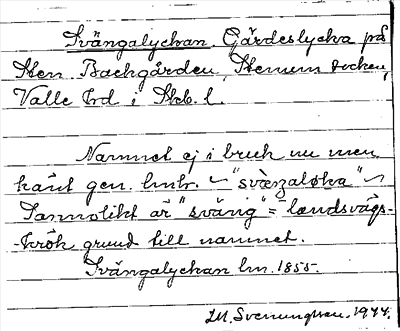 Svängalyckan. Gärdeslycka på
Sten. Backgården, Stenum socken,
Valle hrd i Skb. l.
Namnet ej i bruk nu men
känt gen. lmtr. ~ "sväŋaløka" ~
Sannolikt är "sväng" = landsvägs-
-krök grund till namnet.
Svängalyckan lm. 1855.
M. Svenungsson. 1944.